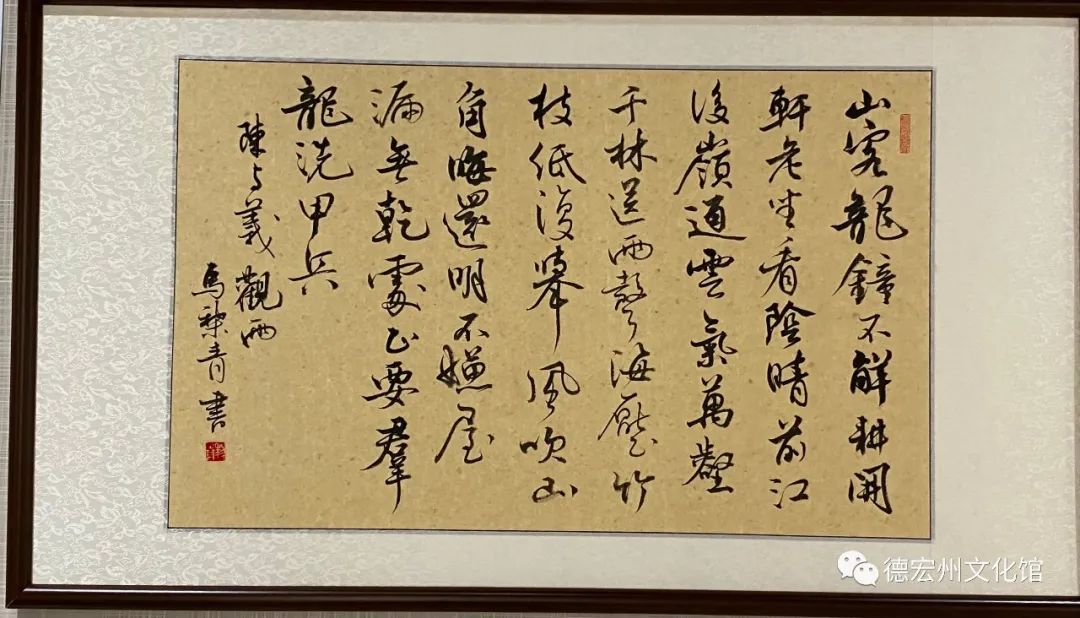 山客龍鐘不解耕開
軒危坐看陰晴前江
後嶺通雲氣萬壑
千林送雨聲海壓竹
枝低復舉風吹山
角晦還明不嫌屋
漏無乾處正要羣
龍洗甲兵
陳与義 觀雨
馬黎青書
德宏州文化馆